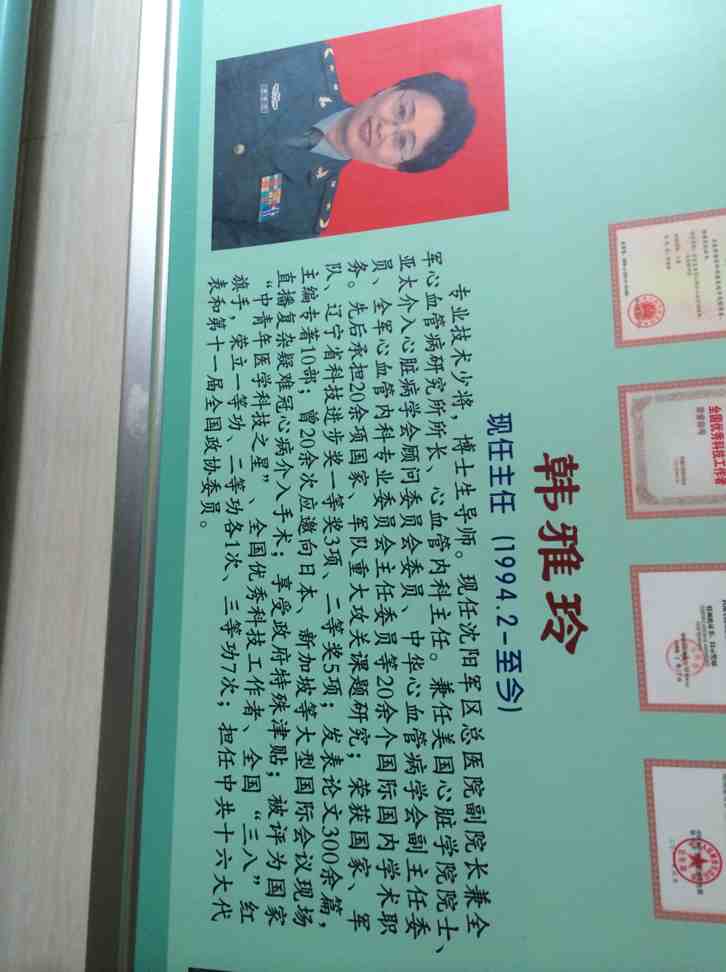 韩雅玲
现任主任（1994.2-至今）
专业技术少将，博士生导师。现任沈阳军区总医院副院长兼全
军心血管病研究所所长、心血管内科主任。兼任美国心脏学院院士、
亚太介入心脏病学会顾问委员会委员、中华心血管病学会副主任委
员、全军心血管内科专业委员会主任委员等20余个国际国内学术职
务。先后承担20余项国家、军队重大攻关课题研究；荣获国家、军
队、辽宁省科技进步奖一等奖3项、二等奖5项；发表论文300余篇，
主编专著10部；曾20余次应邀向日本、新加坡等大型国际会议现场
直播复杂疑难冠心病介入手术；享受政府特殊津贴；被评为国家
“中青年医学科技之星”、全国优秀科技工作者、全国“三八”红
旗手，荣立一等功、二等功各1次、三等功7次；担任中共十六大代
表和第十一届全国政协委员。
全国优秀科技工作者